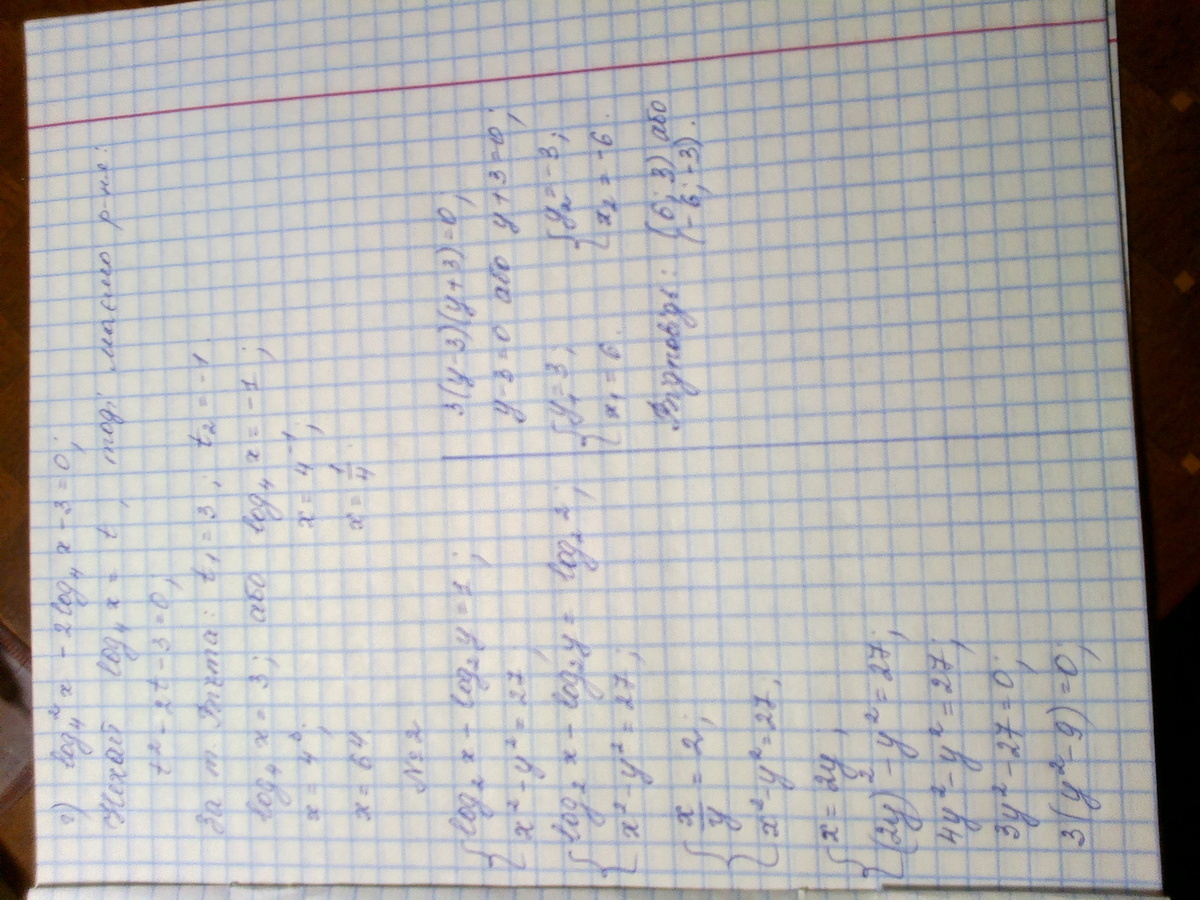 г) log₄²x - 2log₄x - 3 = 0;
Нехай log₄x = t, тоді маємо р-ня:
t² - 2t - 3 = 0;
За т. Вієта: t₁ = 3; t₂ = -1.
log₄x = 3; або log₄x = -1;
x = 4³; x = 4⁻¹;
x = 64. x = 1/4
№2
{ log₂x - log₂y = 1;
x² - y² = 27;
{ log₂x - log₂y = log₂2;
x² - y² = 27;
{ x/y = 2;
x² - y² = 27;
{ x = 2y;
(2y)² - y² = 27;
4y² - y² = 27;
3y² - 27 = 0;
3(y² - 9) = 0;
3(y-3)(y+3) = 0;
y - 3 = 0 або y + 3 = 0;
{ y₁ = 3; { y₂ = -3;
x₁ = 6. x₂ = -6.
Відповідь: (6; 3) або
(-6; -3).